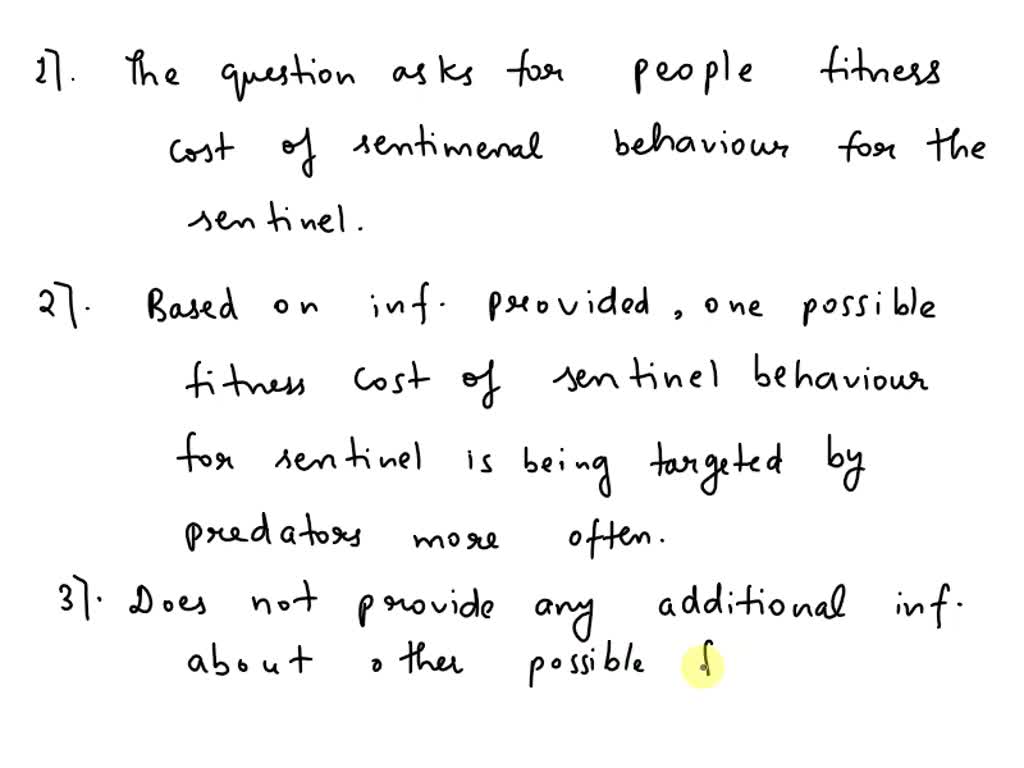 1]. The question asks for people fitness
cost of sentimenal behaviour for the
sentinel.
2]. Based on inf. provided, one possible
fitness cost of sentinel behaviour
for sentinel is being targeted by
predators more often.
3]. Does not provide any additional inf.
about other possible f